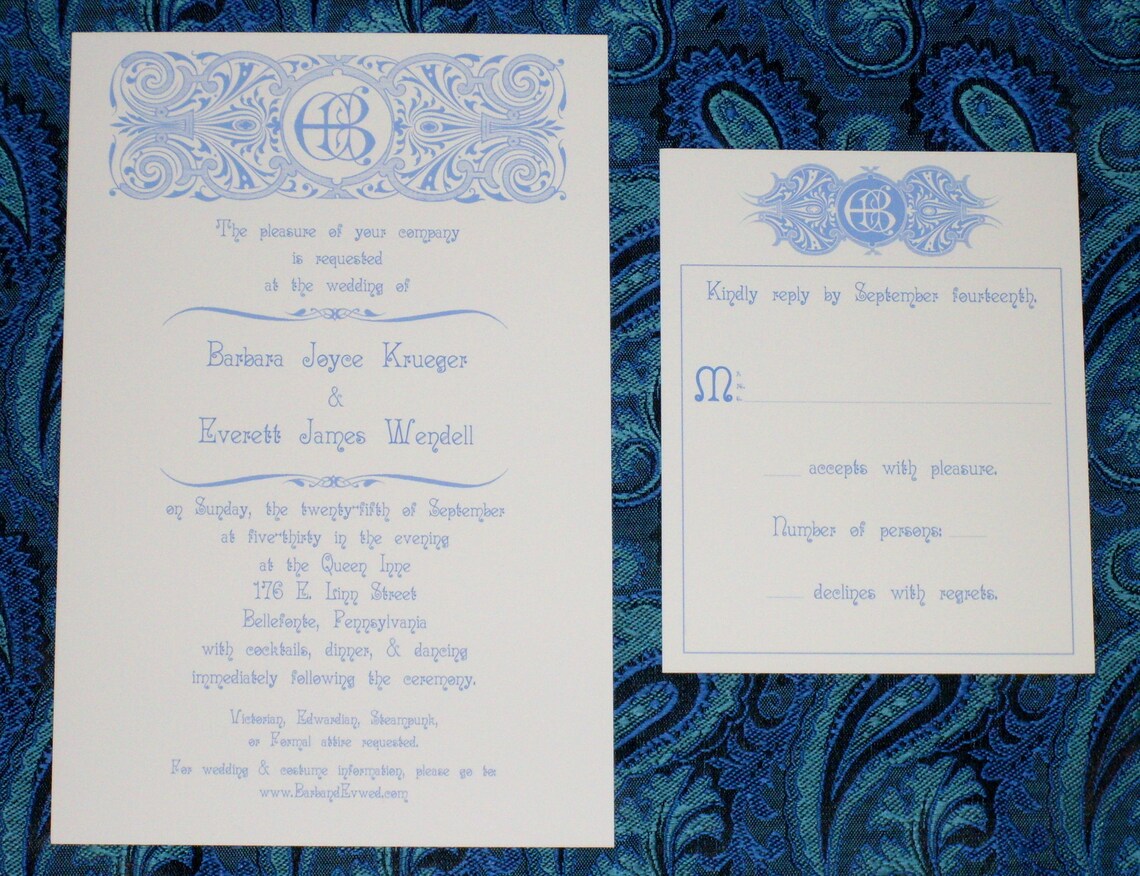 ECB
The pleasure of your company
is requested
at the wedding of
Barbara Joyce Krueger
&
Everett James Wendell
on Sunday, the twenty-fifth of September
at five-thirty in the evening
at the Queen Inne
176 E. Linn Street
Bellefonte, Pennsylvania
with cocktails, dinner, & dancing
immediately following the ceremony.
Victorian, Edwardian, Steampunk,
or Formal attire requested.
For wedding & costume information, please go to:
www.BarbandEvwed.com
ECB
Kindly reply by September fourteenth.
M
accepts with pleasure.
Number of persons:
declines with regrets.